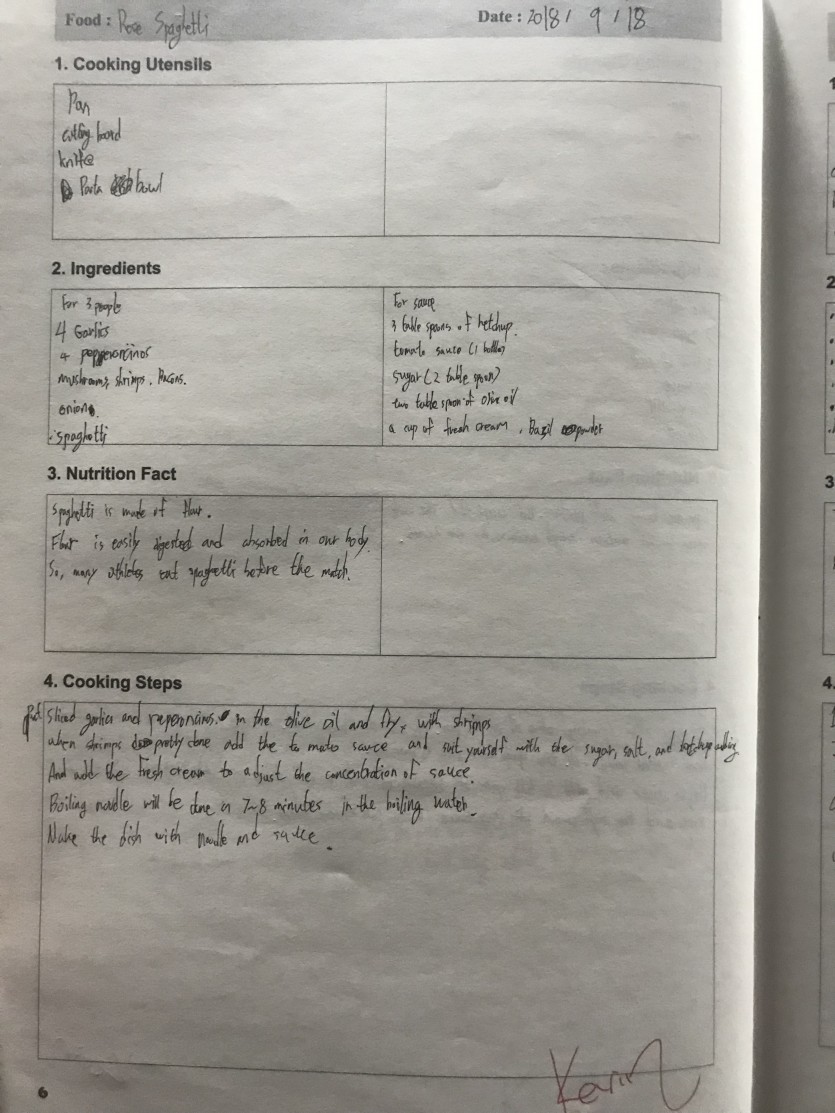 Food : Rose Spaghetti
Date : 2018 / 9 / 18
1. Cooking Utensils
Pan
cutting board
knife
Pasta bowl
2. Ingredients
For 3 people
4 Garlics
4 pepperoncinos
mushrooms, shrimps, Bacons.
onions.
spaghetti
For sauce
3 table spoons of ketchup.
tomato sauce (1 bottle)
sugar (2 table spoon)
two table spoon of olive oil
a cup of fresh cream, Bazil powder
3. Nutrition Fact
Spaghetti is made of flour.
Flour is easily digested and absorbed in our body.
So, many athletes eat spaghetti before the match.
4. Cooking Steps
put Sliced garlics and peperoncinos in the olive oil and fry, with shrimps
when shrimps pretty done add the tomato sauce and suit yourself with the sugar, salt, and ketchup adding
And add the fresh cream to adjust the concentration of sauce.
Boiling noodle will be done in 7~8 minutes in the boiling water.
Make the dish with noodle and sauce.
6